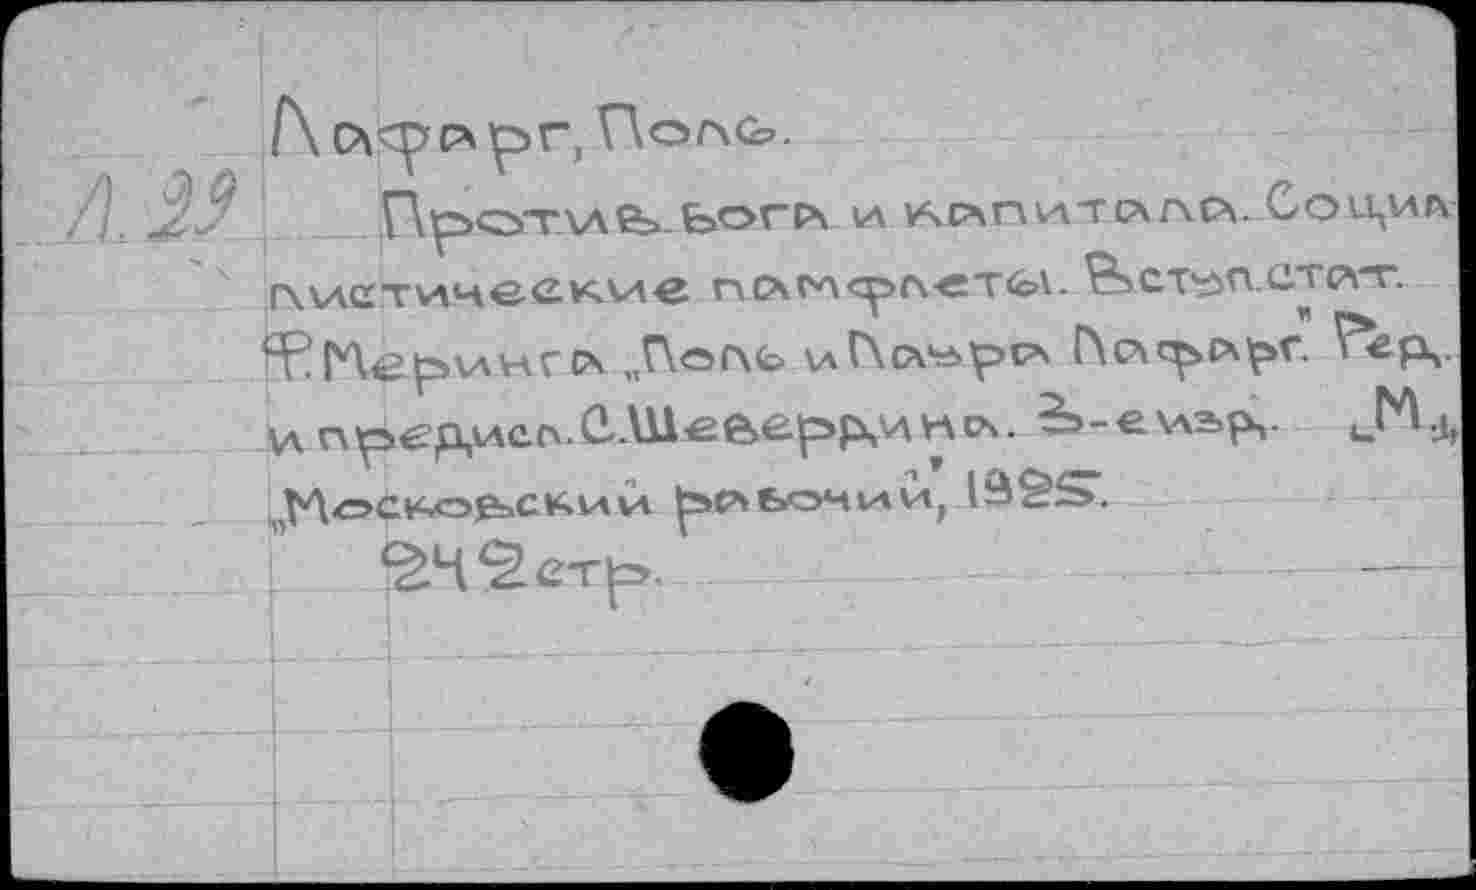 Лафарг, Поль.
Л.29
Против бога и капитала. Социа
листические памфлеты. Вступ.стат.
Ф.Меринга „Поль и Лаура Лафарг". Ред.
и предисл. С.Шевердина. 3-е изд. [М.],
„Московский рабочий", 1925.
242 стр.